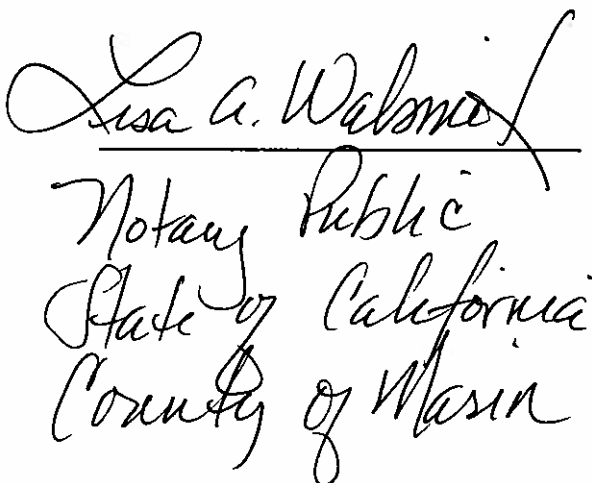 Lisa A.
Notary Public
State of California
County of Marin